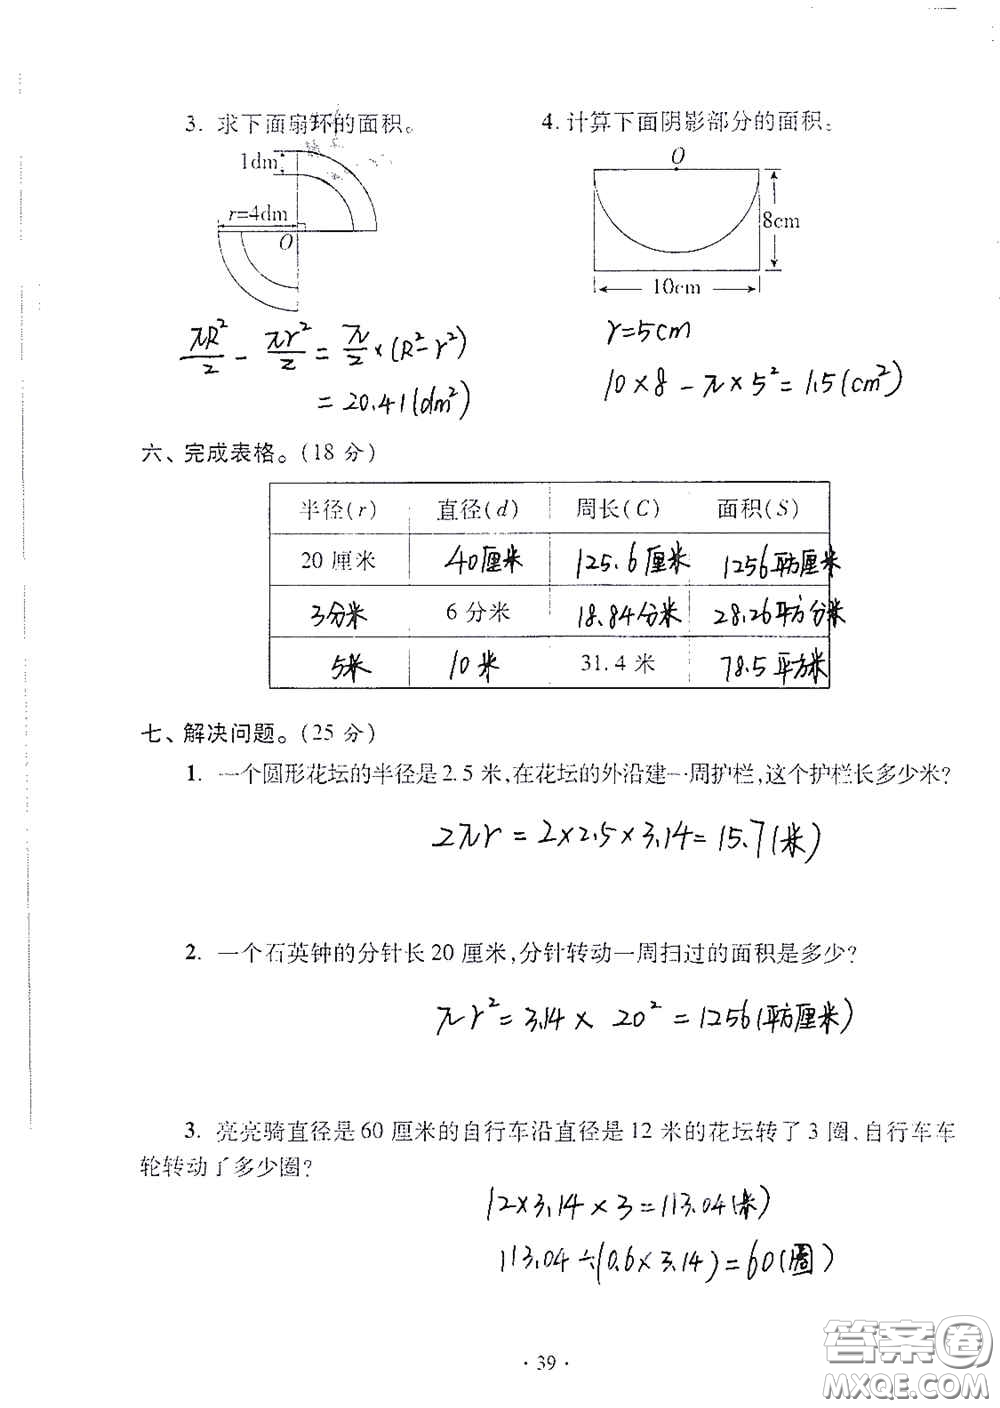 3. 求下面扇环的面积。
1dm
r=4dm
O
πR²/2 - πr²/2 = π/2 ×(R²-r²)
= 20.41(dm²)
4. 计算下面阴影部分的面积。
O
8cm
10cm
r=5cm
10×8-π×5²=1.5(cm²)
六、完成表格。(18 分)
半径(r) 直径(d) 周长(C) 面积(S)
20 厘米 40厘米 125.6厘米 1256平方厘米
3分米 6 分米 18.84分米 28.26平方分米
5米 10米 31.4 米 78.5平方米
七、解决问题。(25 分)
1. 一个圆形花坛的半径是2.5 米,在花坛的外沿建一周护栏,这个护栏长多少米?
2πr=2×2.5×3.14=15.7(米)
2. 一个石英钟的分针长20 厘米,分针转动一周扫过的面积是多少?
πr²=3.14× 20²=1256(平方厘米)
3. 亮亮骑直径是60 厘米的自行车沿直径是12 米的花坛转了3 圈,自行车车
轮转动了多少圈?
12×3.14×3=113.04(米)
113.04÷(0.6×3.14)=60(圈)
· 39 ·
答案卷
MXQE.COM